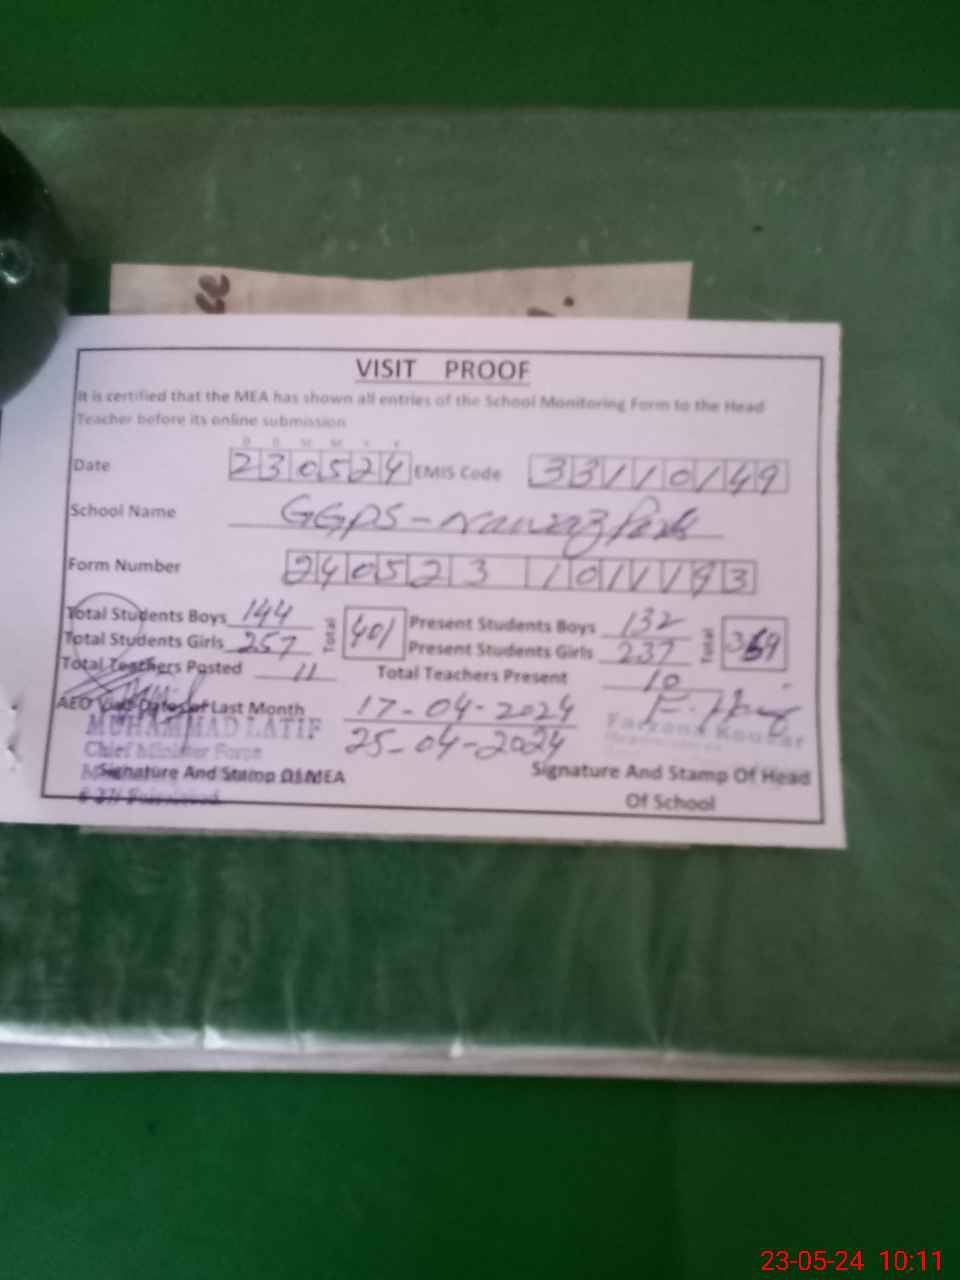 VISIT PROOF
It is certified that the MEA has shown all entries of the School Monitoring Form to the Head
Teacher before its online submission
D D M M Y Y
Date 230524 EMIS Code 33110149
School Name GGPS - Nawaz Park
Form Number 240523 1011193
Total Students Boys 144 Total 401 Present Students Boys 132 Total 369
Total Students Girls 257 Present Students Girls 237
Total Teachers Posted 11 Total Teachers Present 10
AEO Visit Dates of Last Month 17-04-2024
25-04-2024
MUHAMMAD LATIF
Chief Minister Force
Farzana Kousar
Signature And Stamp Of MEA
Signature And Stamp Of Head
Of School
23-05-24 10:11